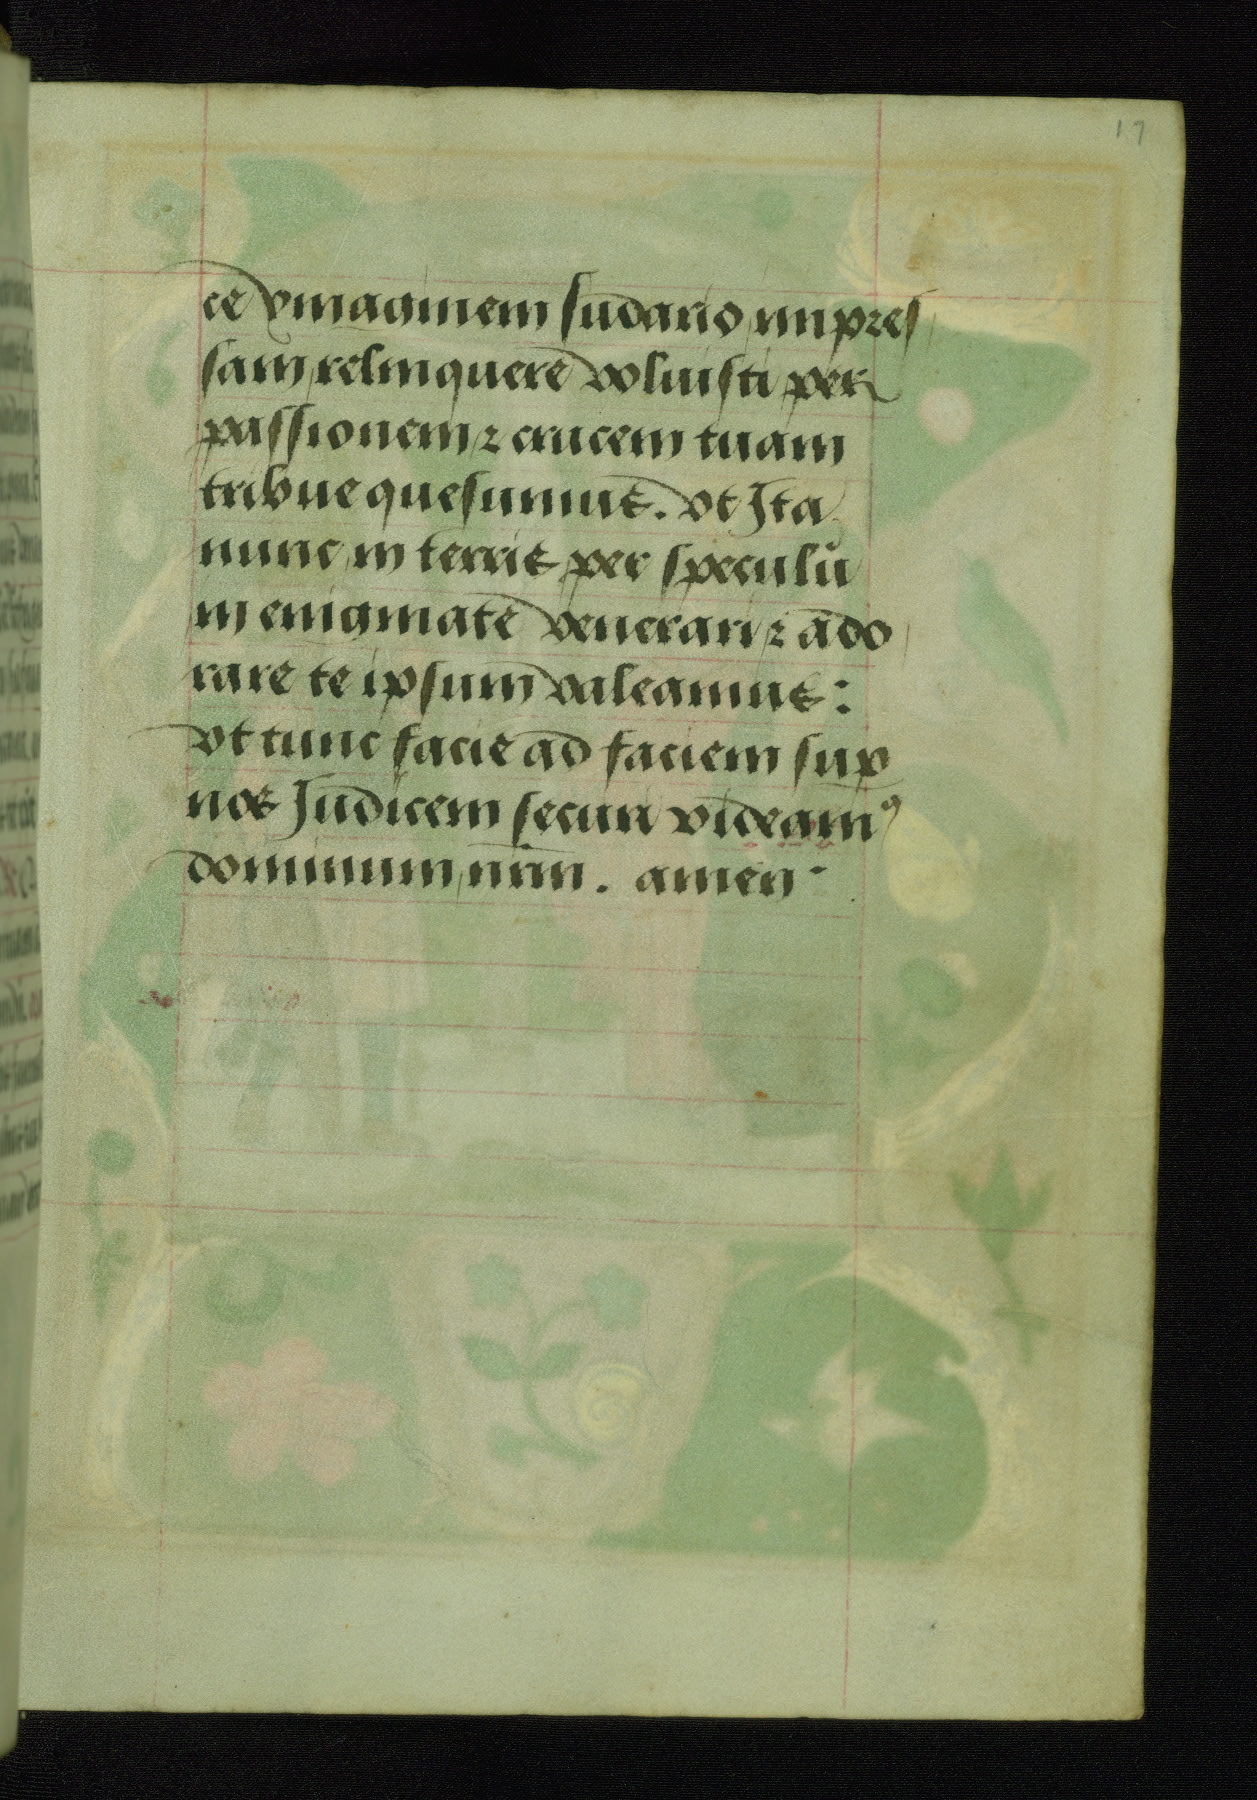 17
ce ymaginem sudario impres
sam relinquere voluisti per
passionem ⁊ crucem tuam
tribue quesumus. vt Ita
nunc in terris per speculũ
in enigmate venerari ⁊ ado
rare te ipsum valeamus:
vt tunc facie ad faciem sup
nos Judicem securi videamꝰ
dominum nr̃m. amen